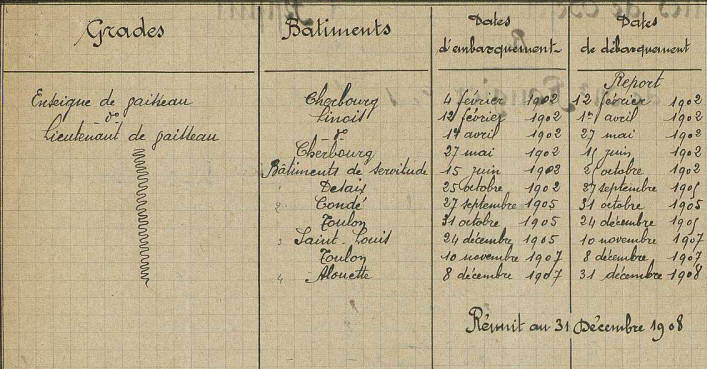 Grades Bâtiments Dates d'embarquement Dates de débarquement
Report
Enseigne de vaisseau Cherbourg 4 février 1902 12 février 1902
do Linois 12 février 1902 1er avril 1902
Lieutenant de vaisseau do 1er avril 1902 27 mai 1902
Cherbourg 27 mai 1902 15 juin 1902
Bâtiments de servitude 15 juin 1902 25 octobre 1902
1 Desaix 25 octobre 1902 27 septembre 1905
2 Condé 27 septembre 1905 31 octobre 1905
Toulon 31 octobre 1905 24 décembre 1905
3 Saint-Louis 24 décembre 1905 10 novembre 1907
Toulon 10 novembre 1907 8 décembre 1907
4 Alouette 8 décembre 1907 31 décembre 1908
Réunit au 31 Décembre 1908